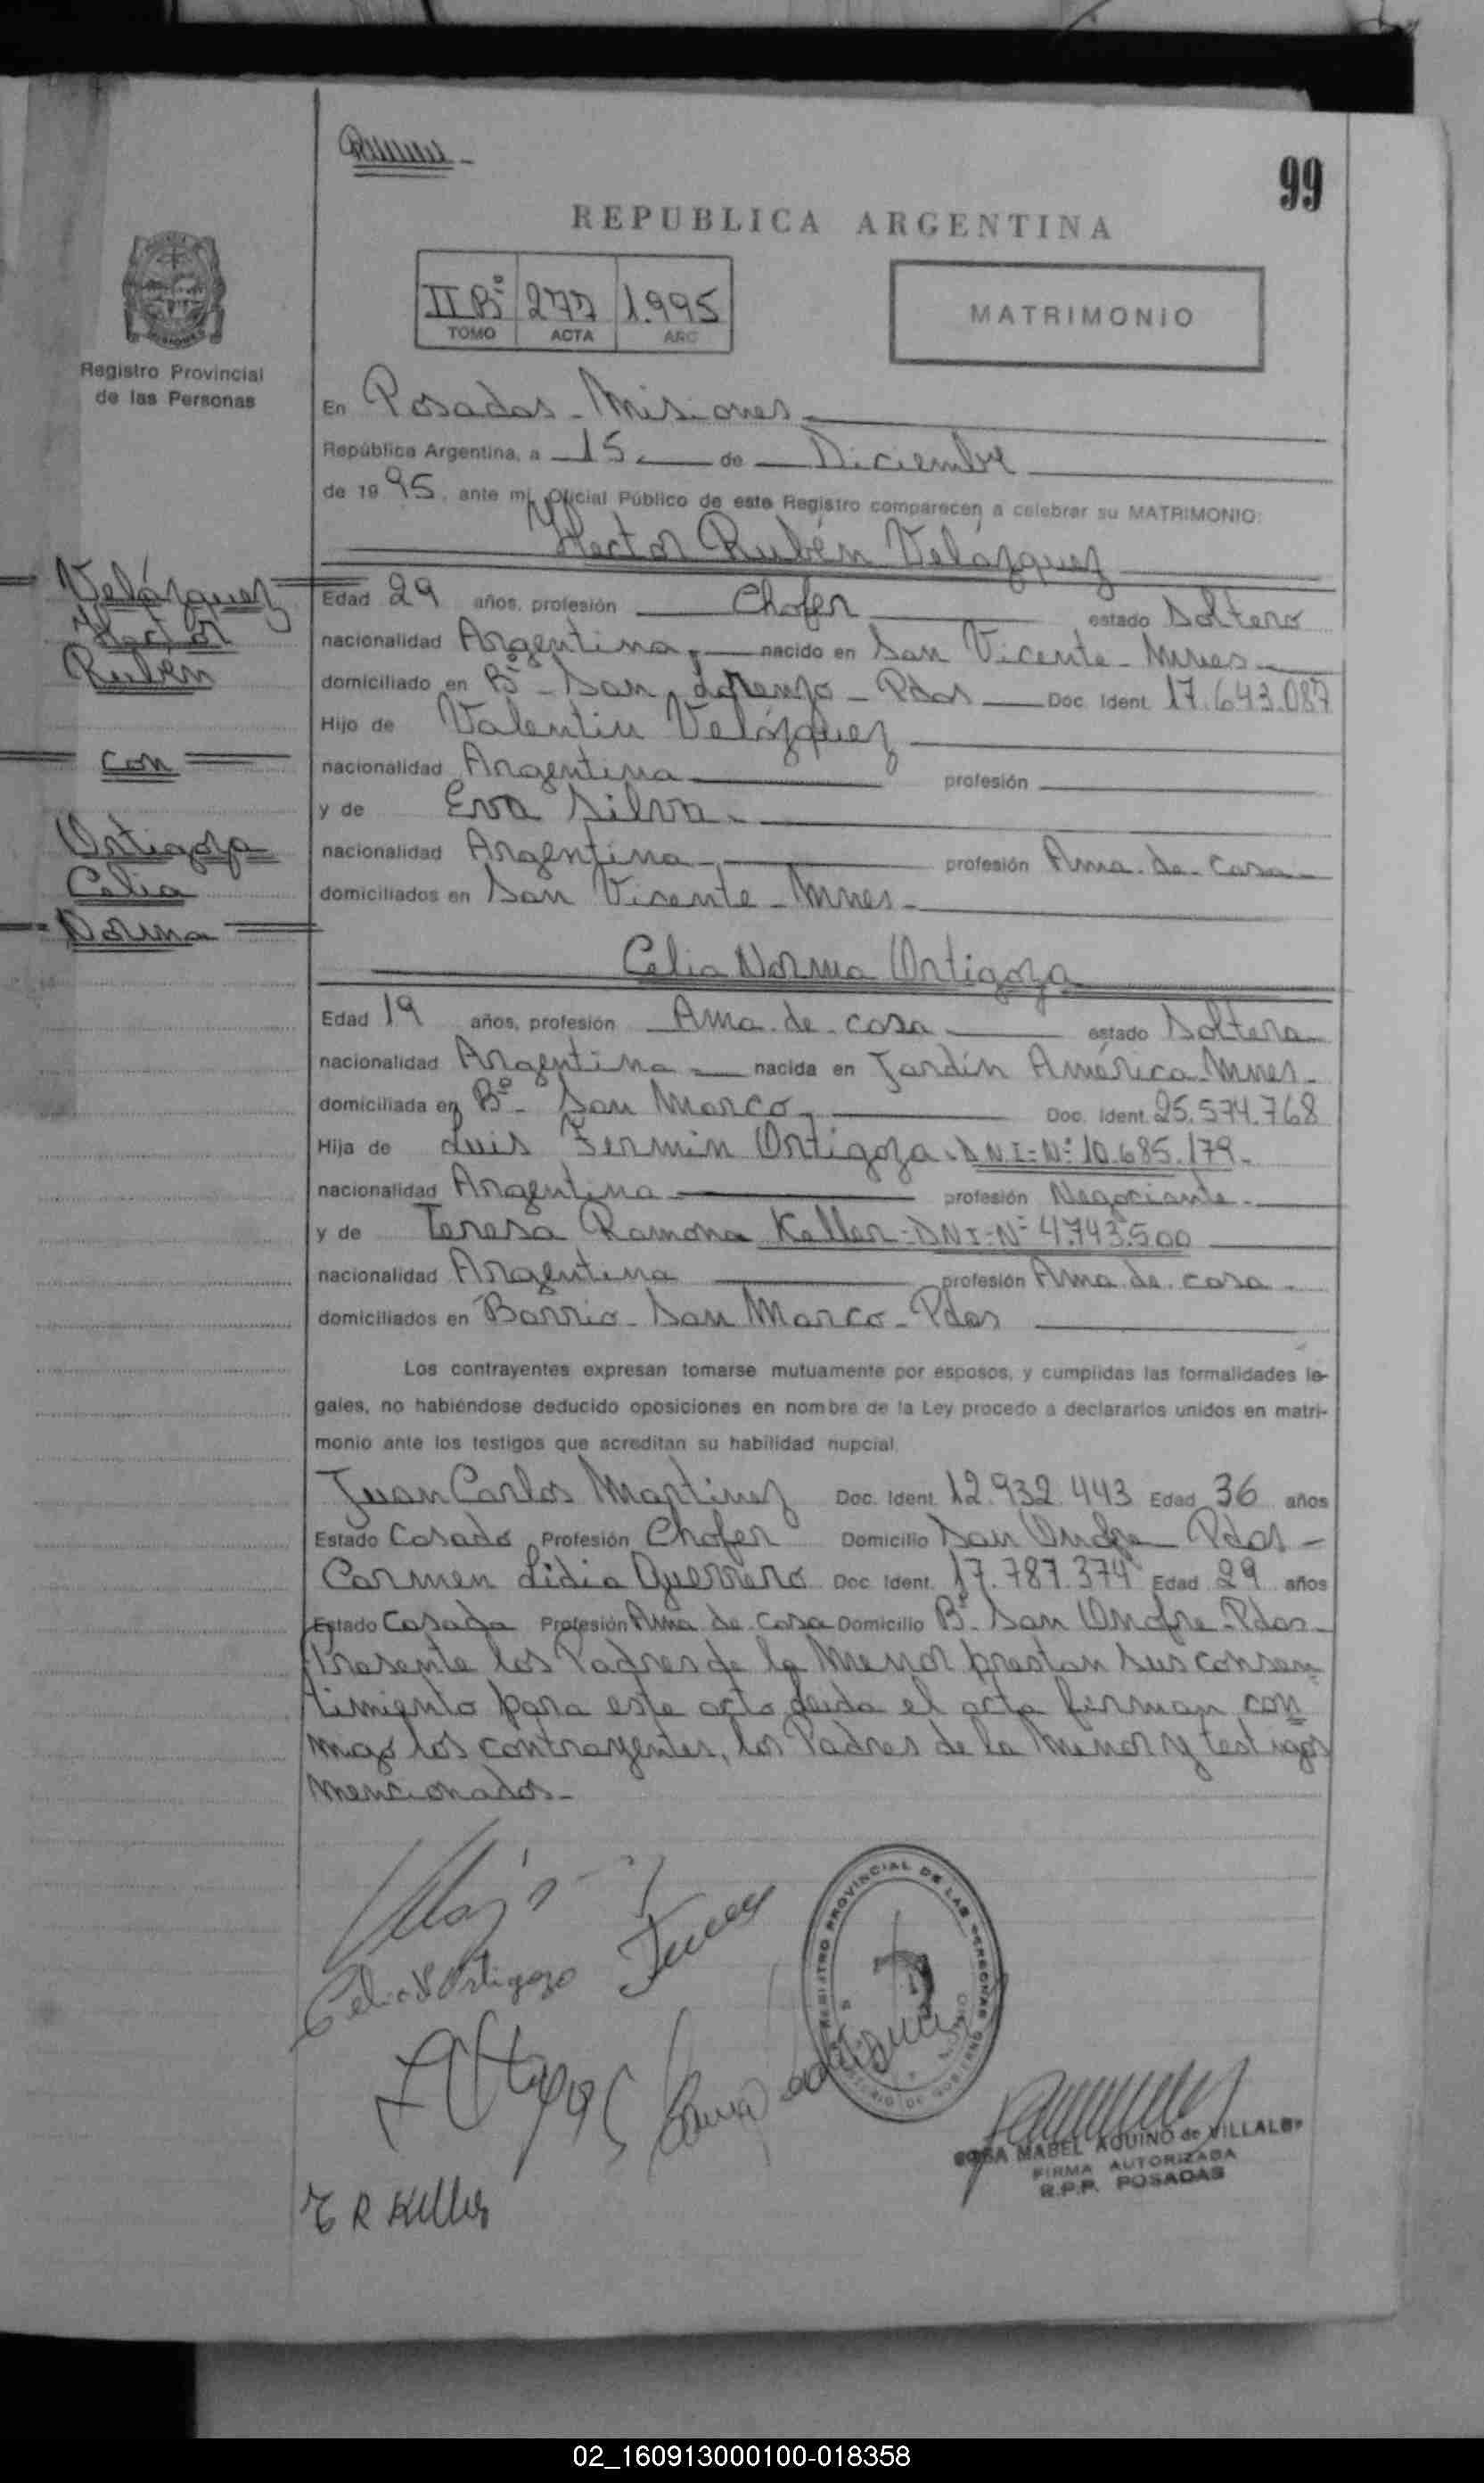 99
REPUBLICA ARGENTINA
II Bº 277 1.995
TOMO ACTA AÑO
MATRIMONIO
Registro Provincial
de las Personas
En Posadas - Misiones
República Argentina, a 15 de Diciembre
de 1995, ante mi, Oficial Público de este Registro comparecen a celebrar su MATRIMONIO:
Hector Rubén Velázquez
Velázquez
Hector
Rubén
con
Ortigoza
Celia
Norma
Edad 29 años, profesión Chofer estado Soltero
nacionalidad Argentina, nacido en San Vicente - Mnes
domiciliado en Bº - San Lorenzo - Pdas Doc. Ident. 17.643.087
Hijo de Valentin Velázquez
nacionalidad Argentina profesión
y de Eva Silva
nacionalidad Argentina profesión Ama de casa
domiciliados en San Vicente - Mnes -
Celia Norma Ortigoza
Edad 19 años, profesión Ama de casa estado Soltera
nacionalidad Argentina nacida en Jardín América - Mnes -
domiciliada en Bº - San Marco Doc. Ident. 25.574.768
Hija de Luis Fermin Ortigoza - DNI - Nº 10.685.179 -
nacionalidad Argentina profesión Negociante
y de Teresa Ramona Keller - DNI - Nº 4.743.500
nacionalidad Argentina profesión Ama de casa
domiciliados en Barrio - San Marco - Pdas
Los contrayentes expresan tomarse mutuamente por esposos, y cumplidas las formalidades le-
gales, no habiéndose deducido oposiciones en nombre de la Ley procedo a declararlos unidos en matri-
monio ante los testigos que acreditan su habilidad nupcial.
Juan Carlos Martinez Doc. Ident. 12.932.443 Edad 36 años
Estado Casado Profesión Chofer Domicilio San Pdas -
Carmen Lidia Guerrero Doc. Ident. 17.787.374 Edad 29 años
Estado Casada Profesión Ama de casa Domicilio Bº - San Onofre - Pdas
Presente los Padres de la menor prestan sus consen
timiento para este acto leida el acta firman con
migo los contrayentes, los Padres de la menor y testigos
mencionados -
Celia N Ortigoza
REGISTRO PROVINCIAL DE LAS PERSONAS
MINISTERIO DE GOBIERNO
T R Keller
ROSA MABEL AQUINO de VILLALBA
FIRMA AUTORIZADA
R.P.P. POSADAS
02_160913000100-018358